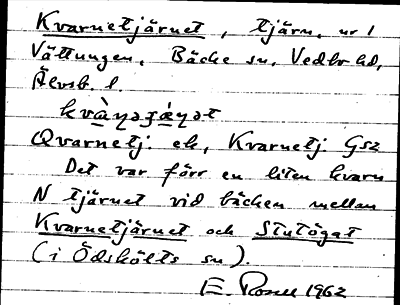 Kvarnetjärnet, tjärn, nr 1
Vättungen, Bäcke sn, Vedbo hd,
Älvsb. l.
kvà̀ɳəʒǽɳət
Qvarnetj. ek, Kvarnetj. Gsz
Det var förr en liten kvarn
N tjärnet vid bäcken mellan
Kvarnetjärnet och Stutögat
(i Ödskölts sn).
E. Rosell 1962